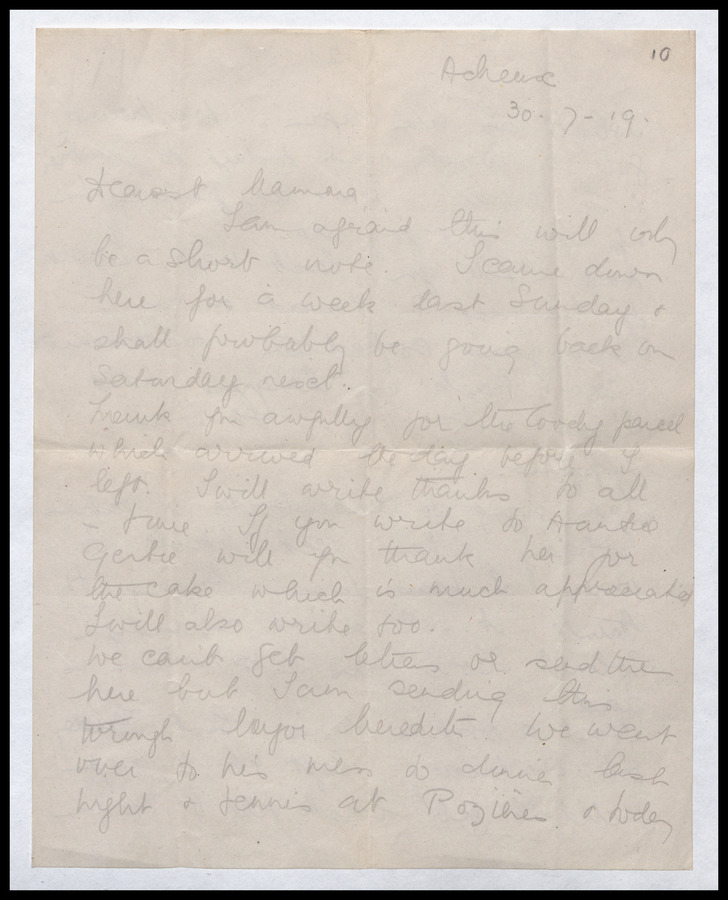 10
Acheux
30-7-19.
Dearest Mamma
I am afraid this will only
be a short note. I came down
here for a week last Sunday &
shall probably be going back on
Saturday next.
Thank you awfully for the lovely parcel
which arrived the day before I
left. I will write thanks to all
in time. If you write to Auntie
Gertie will you thank her for
the cake which is much appreciated
I will also write too.
We can't get letters or send them
here but I am sending this
through Major Meredith. We went
over to his mess to dinner last
night & tennis at Pozières & today